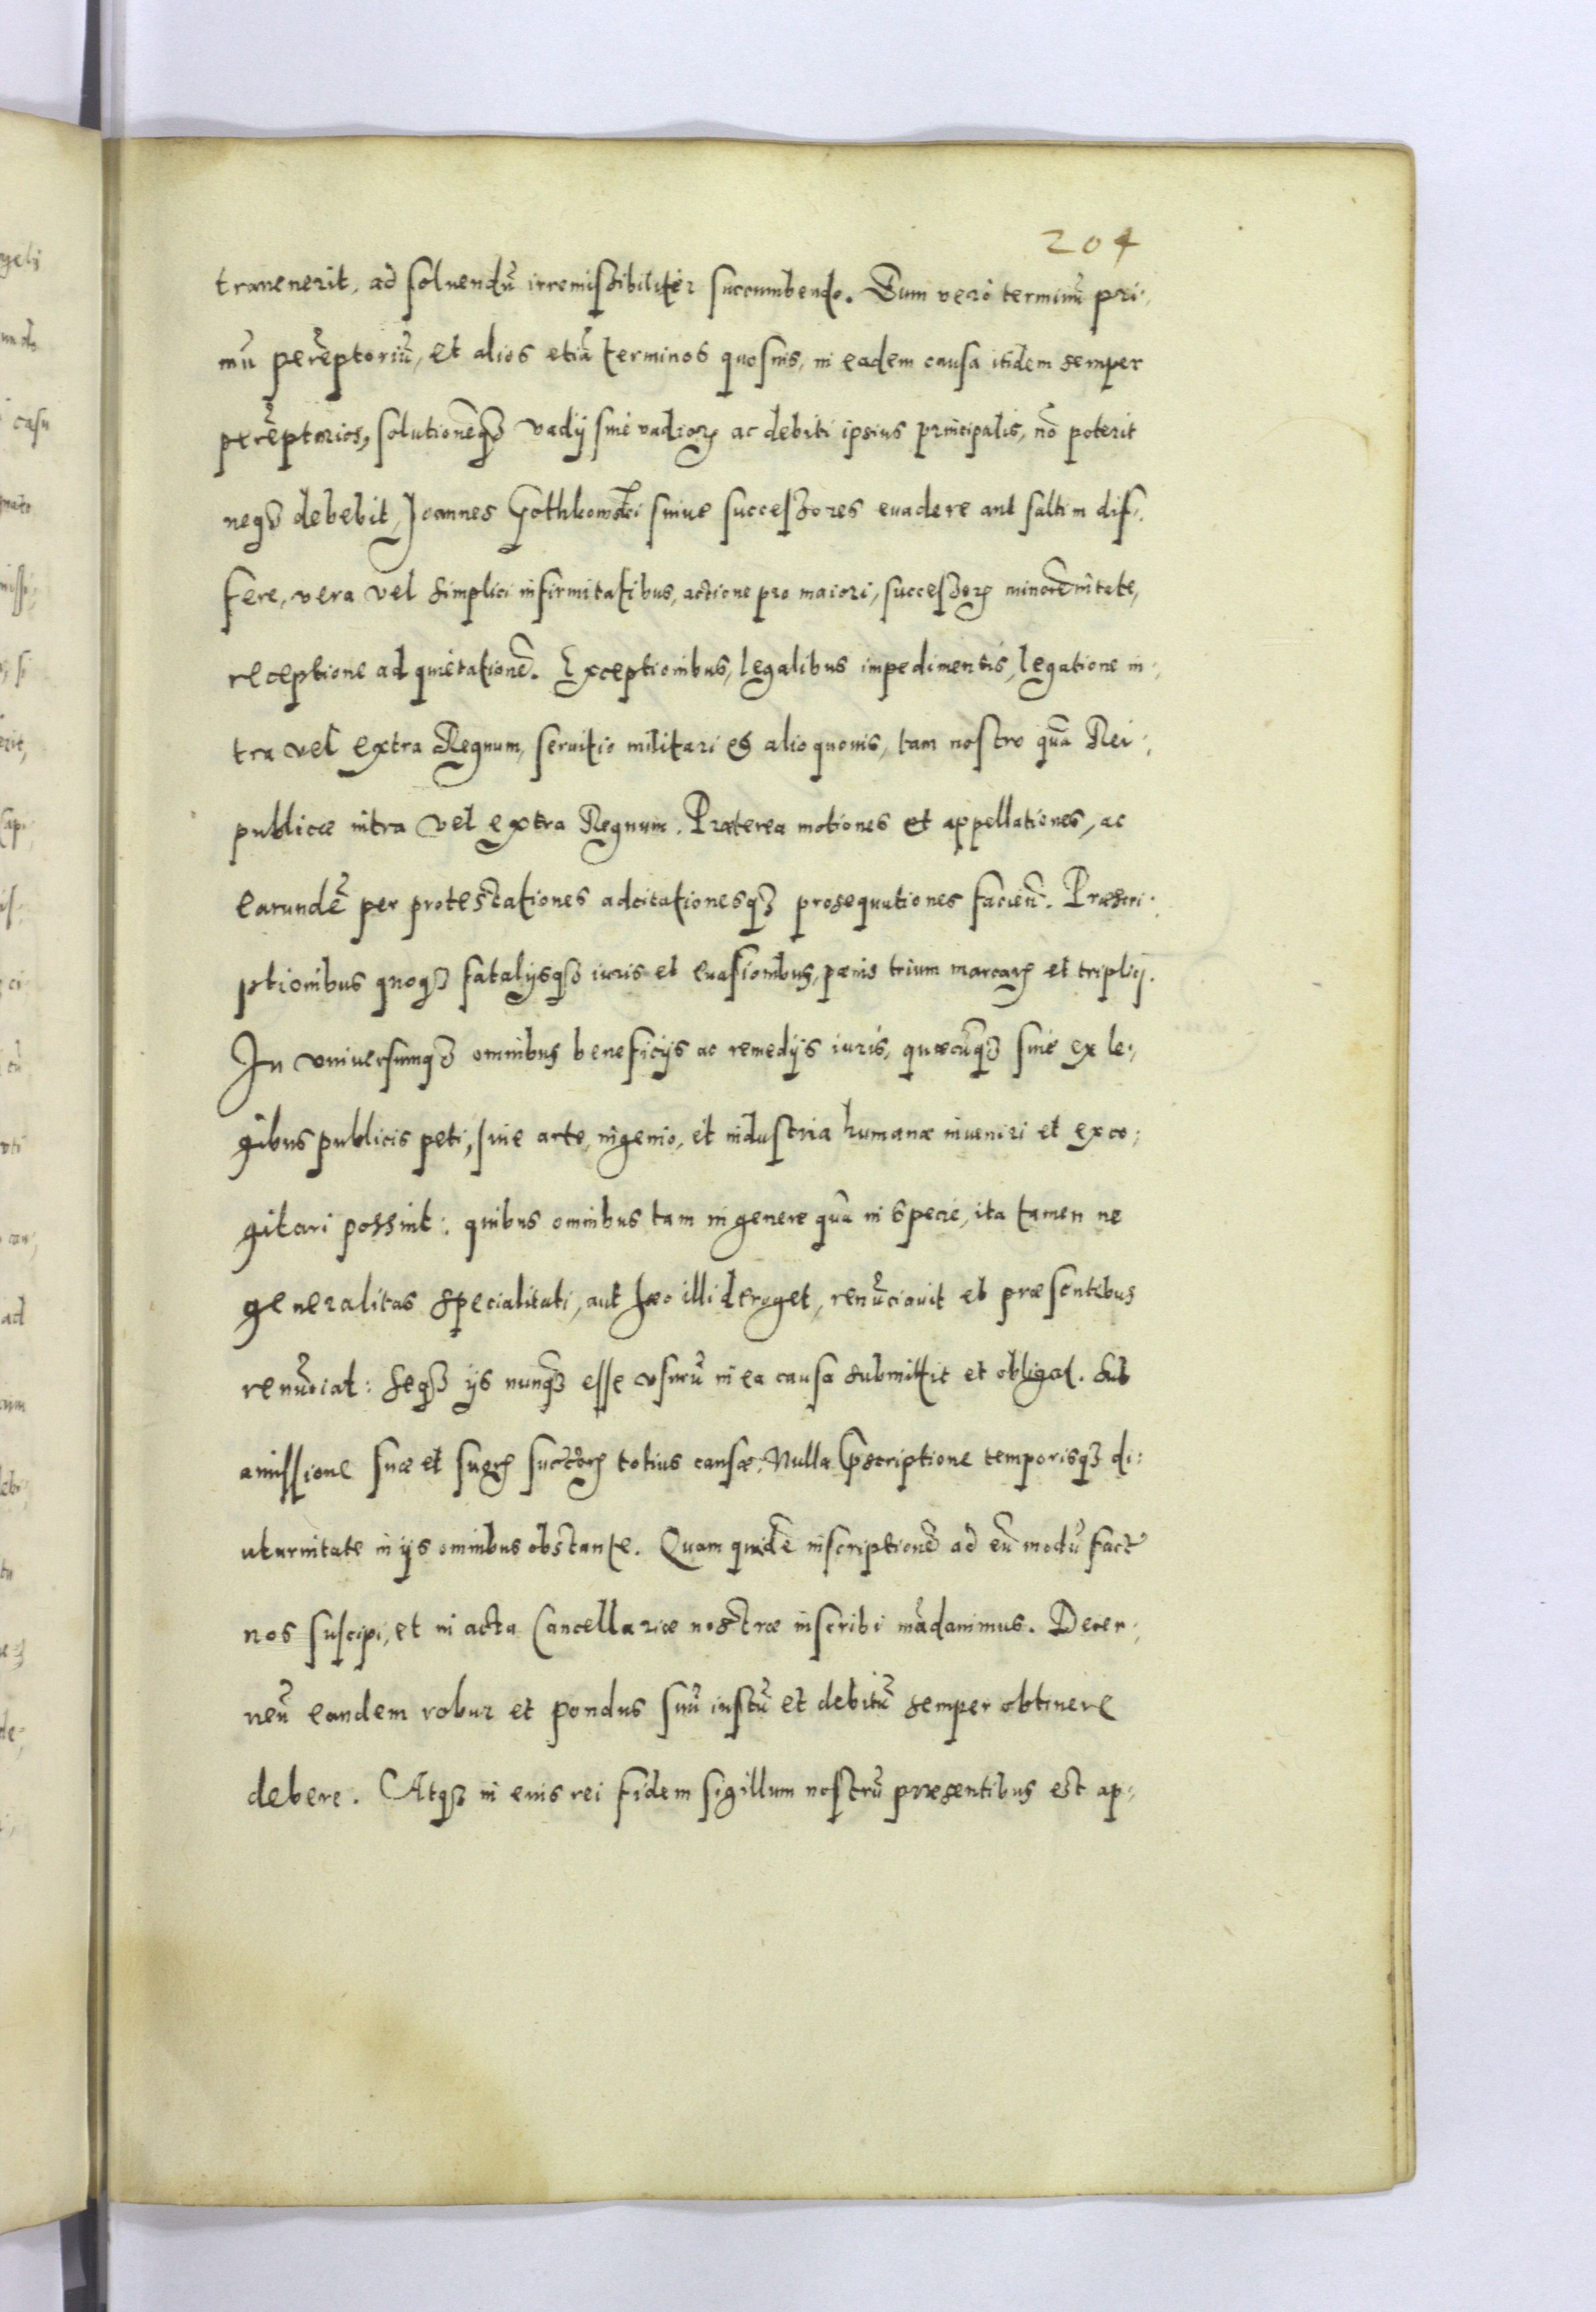 204
trauenerit, ad soluendũ irremissibiliter succumbendo. Eum vero terminũ pri,
mũ perẽptoriũ, et alios etiã terminos quosuis, in eadem causa itidem semper
perẽptorios, solutionẽq3 vadij siue vadiorꝝ ac debiti ipsius principalis, nõ poterit
neq3 debebit, Joannes Gothkowski suiue successores euadere aut saltim dif,
fere, vera vel simplici infirmitatibus, actione pro maiori, successorꝝ minorẽnitate,
receptione ad quietationẽ. Exceptionibus, legalibus impedimentis, legatione in,
tra vel extra Regnum, seruitio militari et alio quouis, tam nostro quã Rei,
publicæ intra vel extra Regnum. Præterea motiones et appellationes, ac
earundẽ per protestationes adcitationesq3 prosequutiones facien̄. Præscri,
ptionibus quoq3 fatalijsq3 iuris et euasionibus, pænis trium marcarꝝ et triplicj.
In vniuersumq3 omnibus beneficijs ac remedijs iuris, quæcũq3 siue ex le,
gibus publicis peti, siue arte, ingenio, et industria humana inueniri et exco,
gitari possint: quibus omnibus tam in genere quã in specie, ita tamen ne
generalitas specialitati, aut hæc illi deroget, renũciauit et præsentibus
renũciat: seq3 ijs nunq3 esse vsurũ in ea causa submittit et obligat. Sub
amissione suæ et suorꝝ succõrꝝ totius causæ. Nulla ꝓscriptione temporisq3 di:
uturnitate in ijs omnibus obstante. Quam quidẽ inscriptionẽ ad eũ modũ fact̃
nos suscipi, et in acta Cancellariæ nostræ inscribi mãdauimus. Decer,
neñ eandem robur et pondus suũ iustũ et debitũ semper obtinere
debere. Atq3 in euis rei fidem sigillum nostrũ præsentibus est ap,